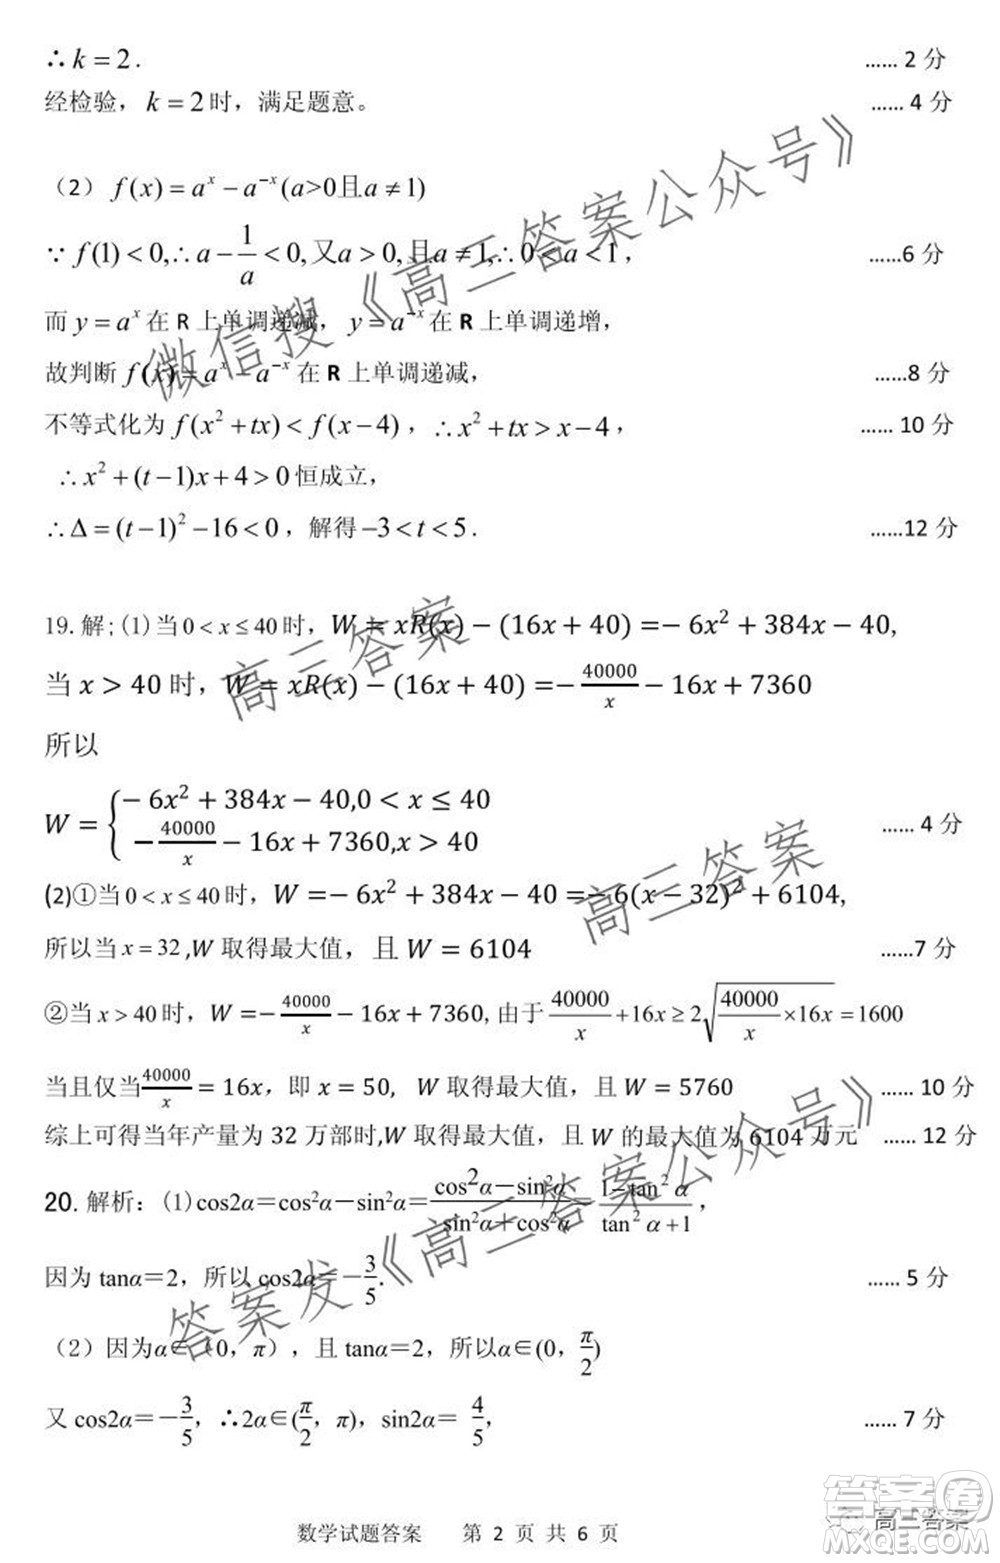 ∴k=2.  …… 2 分
经检验，k=2时，满足题意。  …… 4 分
（2）f(x)=aˣ−a⁻ˣ(a>0且a≠1)
∵f(1)<0,∴a−1/a<0,又a>0,且a≠1,∴0<a<1，  ……6 分
而 y=aˣ在 R 上单调递减，y=a⁻ˣ在 R 上单调递增，
故判断 f(x)=aˣ−a⁻ˣ在 R 上单调递减，  ……8 分
不等式化为 f(x²+tx)<f(x−4)，∴x²+tx>x−4，  …… 10 分
∴x²+(t−1)x+4>0恒成立，
∴Δ=(t−1)²−16<0，解得−3<t<5．  ……12 分
19.解;(1)当0<x≤40时，W=xR(x)−(16x+40)=−6x²+384x−40,
当 x>40 时，W=xR(x)−(16x+40)=−40000/x−16x+7360
所以
W={−6x²+384x−40,0<x≤40
−40000/x−16x+7360,x>40  …… 4 分
(2)①当0<x≤40时，W=−6x²+384x−40=−6(x−32)²+6104,
所以当 x=32,W 取得最大值，且 W=6104  ……7 分
②当 x>40 时，W=−40000/x−16x+7360,由于40000/x+16x≥2√(40000/x×16x)=1600
当且仅当40000/x=16x，即 x=50, W 取得最大值，且 W=5760  …… 10 分
综上可得当年产量为 32 万部时,W 取得最大值，且 W 的最大值为 6104 万元  …… 12 分
20. 解析：(1)cos2α＝cos²α−sin²α＝(cos²α−sin²α)/(sin²α+cos²α)＝(1−tan²α)/(tan²α+1)，
因为 tanα＝2，所以 cos2α＝−3/5.  …… 5 分
（2）因为α∈（0，π），且 tanα＝2，所以α∈(0，π/2)
又 cos2α＝−3/5，∴2α∈(π/2，π)，sin2α＝4/5，  …… 7 分
数学试题答案  第 2 页 共 6 页
微信搜《高三答案公众号》
高三答案
高三答案
答案发《高三答案公众号》
答案卷
高三答案